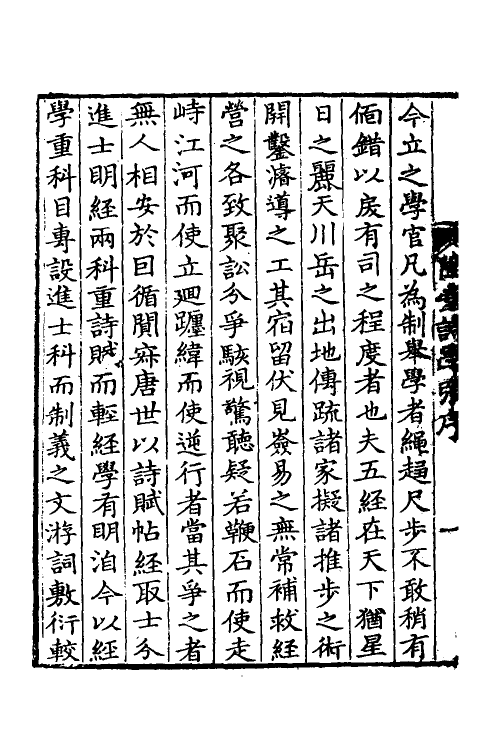 今立之學官凡為制舉學者繩趨尺步不敢稍有
偭錯以戾有司之程度者也夫五經在天下猶星
日之麗天川岳之出地傳疏諸家擬諸推步之術
開鑿濬導之工其宿留伏見僉易之無常補救經
營之各致聚訟分爭駭視驚聽疑若鞭石而使走
峙江河而使立廻躔緯而使逆行者當其爭之者
無人相安於因循闃寂唐世以詩賦帖經取士分
進士明經兩科重詩賦而輕經學有明洎今以經
學重科目專設進士科而制義之文浮詞敷衍較
詩學 序
一